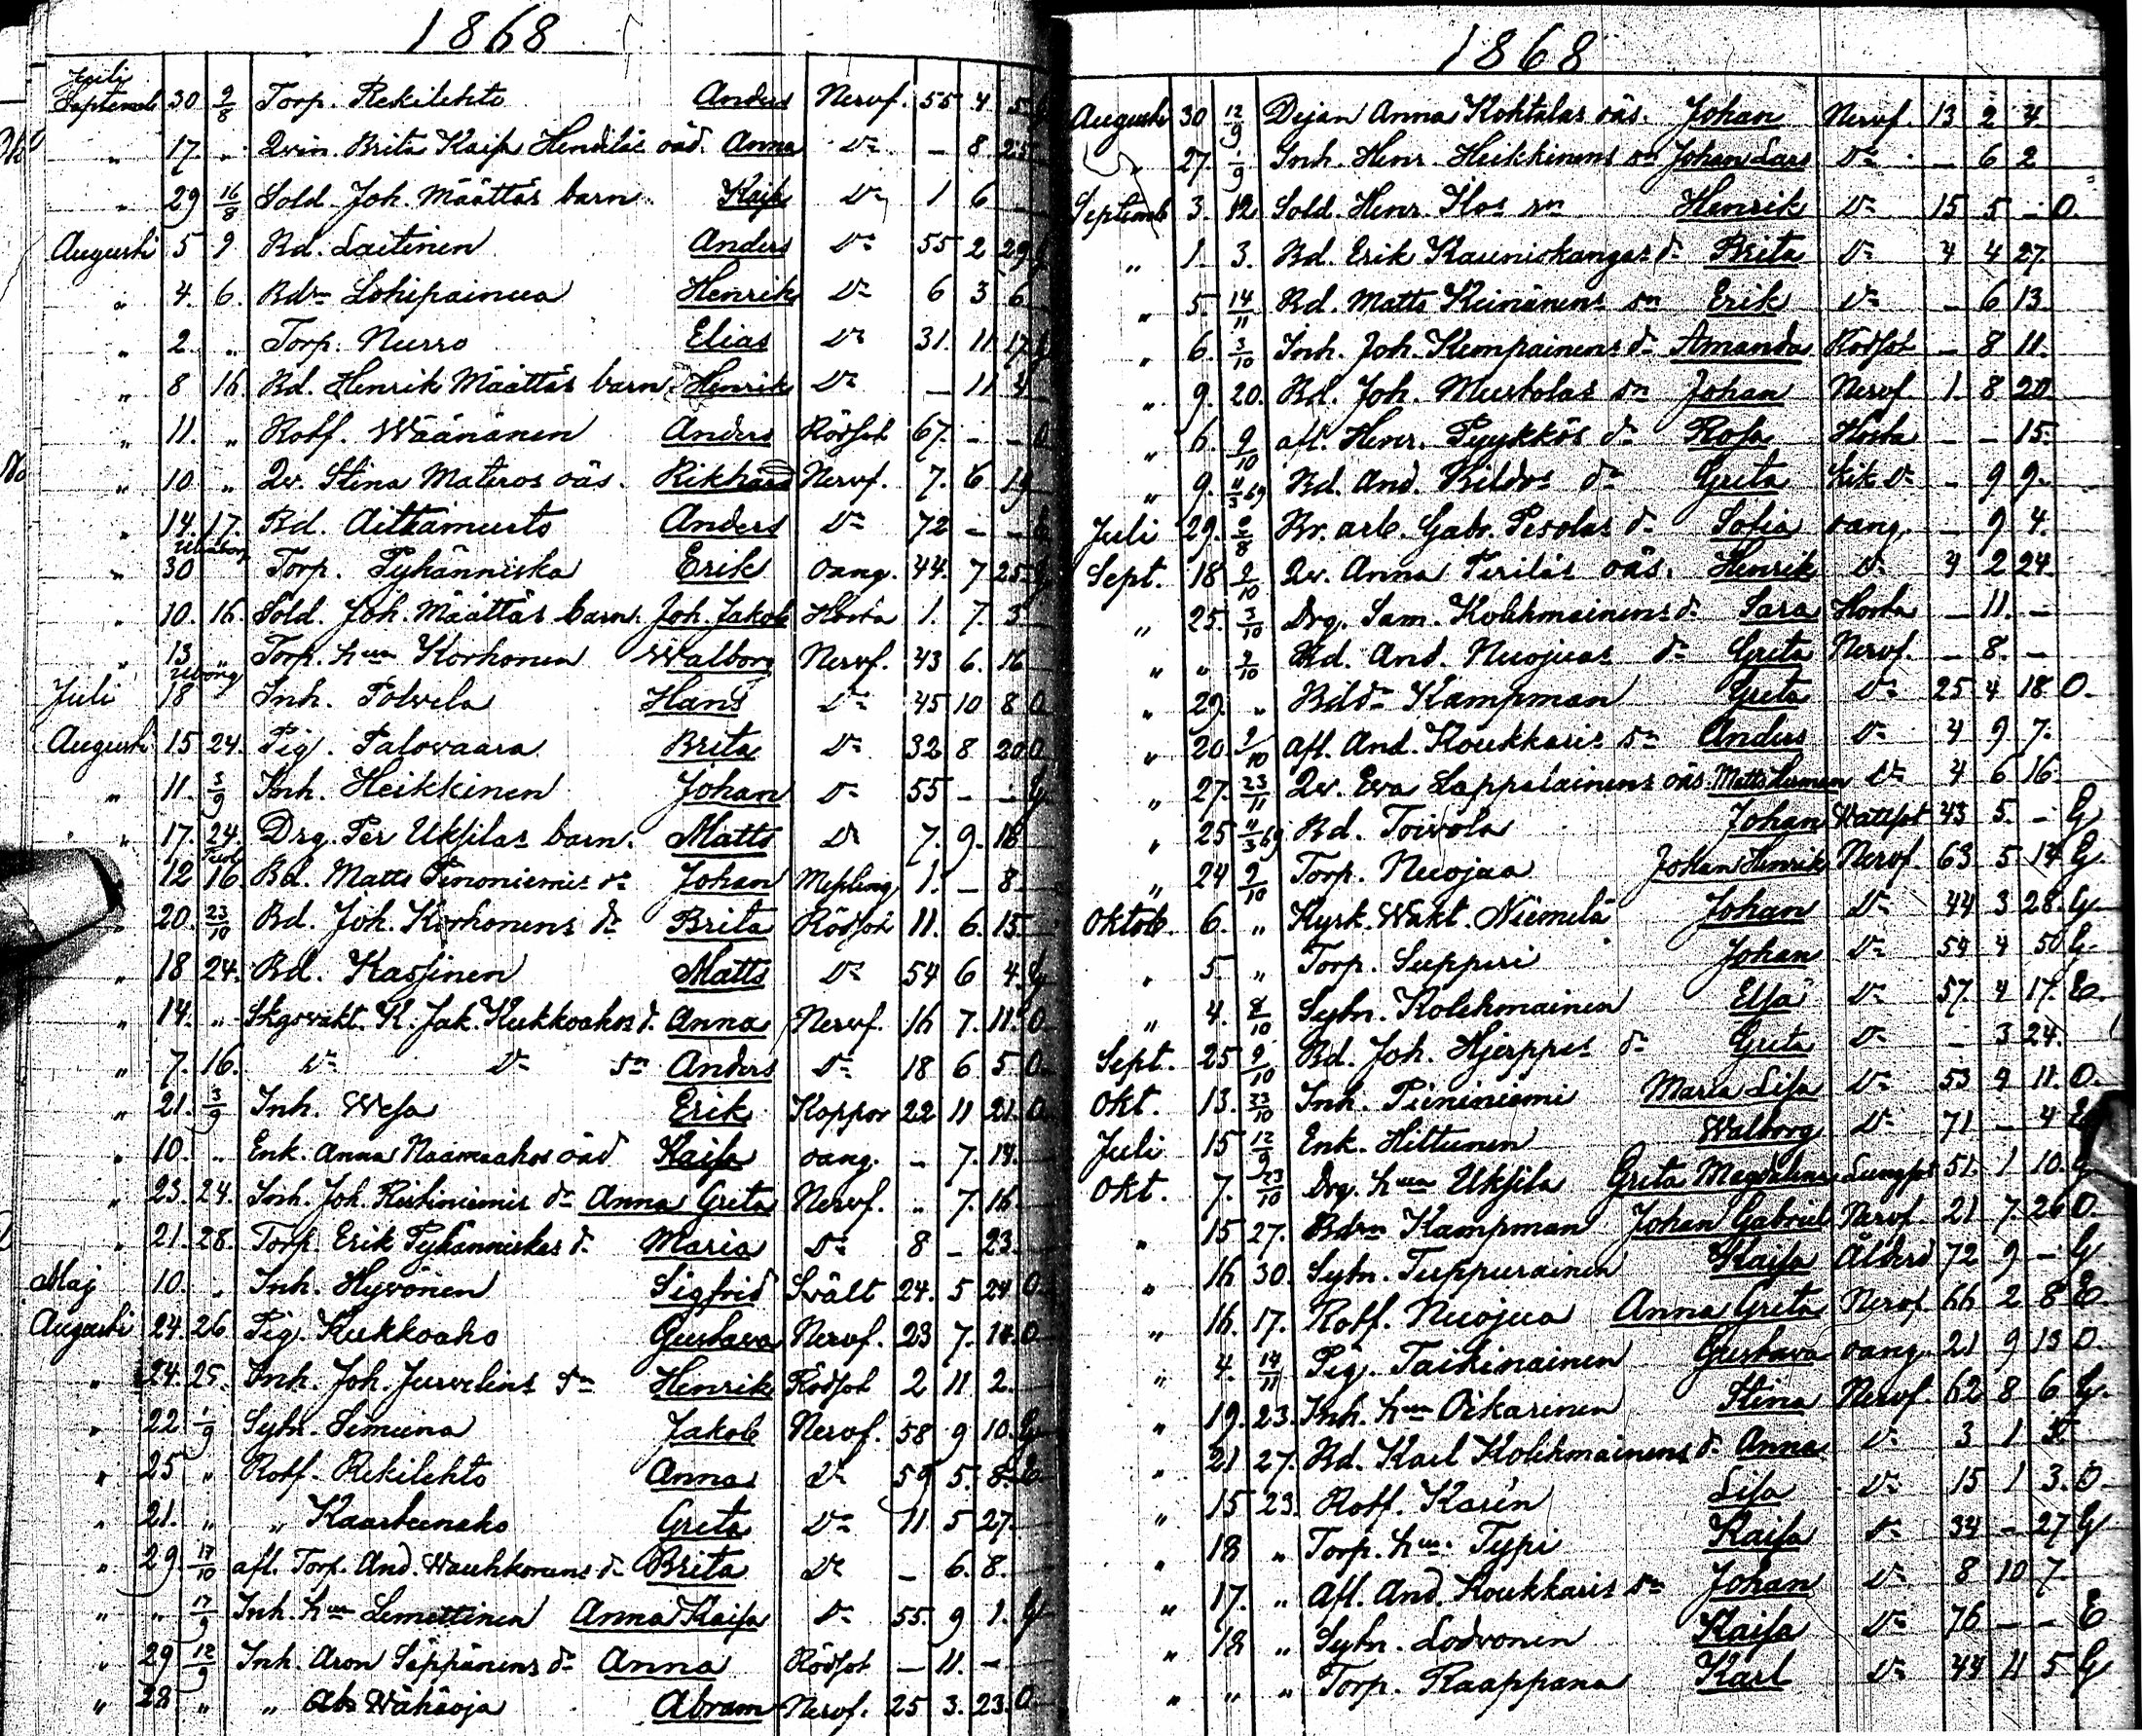 1868
Juli
Septemb 30 9/8 Torp. Rekilehto Anders Nervf. 55 4 5 G
" 17. " Qvin. Brita Kaisa Hendilä oäd. Anna Dº – 8 25
" 29 16/8 Sold. Joh. Määttäs barn Kajsa Dº 1 6 –
Augusti 5 9 Bd. Laitinen Anders Dº 55 2 29 G
" 4. 6. Bdsn Lohipainua Henrik Dº 6 3 6
" 2 " Torp. Nurro Elias Dº 31. 11. 17. G
" 8 16. Bd. Henrik Määttäs barn Henrik Dº – 11 4
" 11. " Rotf. Wäänänen Anders Rödsot 67. – –
" 10 " Qv. Stina Materos oäs. Rikhard Nervf. 7. 6 19
" 14. 17. Bd. Aittamurto Anders Dº 72 – –
" 30 Torp. Pyhänniska Erik oang. 44. 7 25 G
" 10. 16. Sold. Joh. Määttäs barn. Joh. Jakob Hosta 1. 7. 3
" 13 " Torp. hun Korhonen Walborg Nervf. 43 6. 16
Juli 18 Inh. Polvela Hans Dº 45 10 8 O
Augusti 15 24. Pig. Palovaara Brita Dº 32 8 20 O
" 11. 3/9 Inh. Heikkinen Johan Dº 55 – – G
" 17. 24. Drg. Per Uksilas barn. Matts Dº 7. 9. 18
12 16. Bd. Matts Pinoniemis sn Johan Meßling 1. – 8
" 20. 23/10 Bd. Joh. Korhonens dr Brita Rödsot 11. 6. 15
" 18 24. Bd. Kassinen Matts Dº 54 6 4. G
" 14. " Skgsvakt. K. Jak. Kukkoahos d. Anna Nervf. 16 7. 11. O
" 7. 16. Dº Dº sn Anders Dº 18 6 5 O
" 21. 3/9 Inh. Wesa Erik Koppor 22 11 21. O
" 10. " Enk. Anna Naamaahos oäd Kaisa oang. – 7. 18.
" 23. 24. Inh. Joh. Ristiniemis dr Anna Greta Nervf. " 7. 16.
" 21. 28. Torp. Erik Pyhänniskas d. Maria Dº 8 – 23
Maj 10. " Inh. Hyvönen Sigfrid Svält 24. 5 24 O
Augusti 24. 26 Pig. Kukkoaho Gustava Nervf. 23 7. 14. O
" 24. 25. Inh. Joh. Jurvelins sn Henrik Rödsot 2 11 2.
" 22 1/9 Sytn. Simuna Jakob Nervf. 58 9 10. G
" 25 " Rotf. Rekilehto Anna Dº 59 5. 8. E
" 21. " " Kaarteenaho Greta Dº 11 5 27.
" 29. 17/10 afl. Torp. And. Wauhkonens d. Brita Dº – 6. 8.
" " 17/9 Inh. hun Lemettinen Anna Kaisa Dº 55. 9 1. G
" 29 12/9 Inh. Aron Seppänens dr Anna Rödsot – 11. –
" 28 " " Wähäoja Abram Nervf. 25 3. 23. O
1868
Augusti 30 12/9 Dejan Anna Kohtalas oäs. Johan Nervf. 13 2 4.
" 27. 1/9 Inh. Henr. Heikkinens sn Johan Lars Dº – 6 2
Septemb 3. 12 Sold. Henr. Ilos sn Henrik Dº 15 5 – O.
" 1. 3. Bd. Erik Kauniskangas dr Brita Dº 4 4 27.
" 5. 14/11 Bd. Matts Keinänens sn Erik Dº – 6 13.
" 6. 3/10 Inh. Joh. Kempainens dr Amanda Rödsot – 8 11.
" 9. 20. Bd. Joh. Mustolas sn Johan Nervf. 1. 8 20
" 6. 9/10 afl. Henr. Pyykkös dr Rosa Hosta – – 15.
" 9. 11/3 69 Bd. And. Kildos dr Greta kik Dº – 9 9.
Juli 29. 2/8 Br. arb. Gabr. Pesolas dr Sofia oang. – 9 4.
Sept. 18 9/10 Qv. Anna Piriläs oäs. Henrik Dº 4 2 24.
" 25. 3/10 Drg. Sam. Kolehmainens dr Sara Hosta – 11. –
" " 9/10 Bd. And. Nuojuas dr Greta Nervf. – 8. –
" 29. " Bddr Kampman Greta Dº 25 4 18 O.
" 20. 9/10 afl. And. Koukkaris sn Anders Dº 4 9 7.
" 27. 23/11 Qv. Eva Lappalainens oäs Matts Herman Dº 4 6 16.
" 25 11/3 69 Bd. Toivola Johan Wattsot 43 5. – G
" 24 9/10 Torp. Nuojua Johan Henrik Nervf. 63 5 14 G
Oktob. 6. " Kyrk. Wakt. Niemelä Johan Dº 44 3 28. G
" 5. " Torp. Suppiri Johan Dº 54 4 50 G
" 4. 8/10 Sytn. Kolehmainen Elsa Dº 57. 4 17. E
Sept. 25 9/10 Bd. Joh. Hjerppes dr Greta Dº – 3 24.
Okt. 13. 23/10 Inh. Pieniniemi Maria Lisa Dº 53 9 11. O.
Juli 15 12/9 Enk. Hiltunen Walborg Dº 71 – 4 E
Okt. 7. 23/10 Drg. hun Uksila Greta Magdalena Lungsot 51. 1 10. G
" 15 27. Bdsn Kampman Johan Gabriel Nervf. 21 7. 26 O.
" 16 30. Sytn. Tuppurainen Kaisa Ålderd 72 9 – G
" 16. 17. Rotf. Nuojua Anna Greta Nervf. 66 2 8 E
" 4. 14/11 Pig. Taikinainen Gustava oang. 21 9 13 O
" 19. 23. Inh. hun Oikarinen Stina Nervf. 62 8 6 G.
" 21 27. Bd. Karl Kolehmainens dr Anna Dº 3 1
" 15 23. Rotf. Karén Lisa Dº 15 1 3. O.
" 18 " Torp. hun. Typi Kaisa Dº 34 – 27 G
" 17. " Afl. And. Koukkaris sn Johan Dº 8 10 7
" 18 " Sytn. Lodvonen Kaisa Dº 76 – – E
" " " Torp. Raappana Karl Dº 44 11 5 G